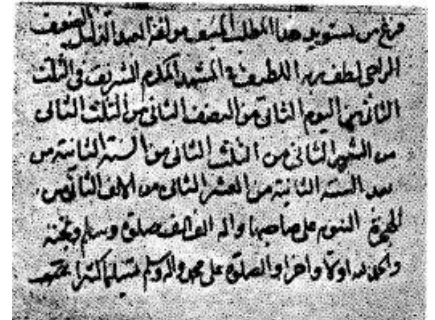 فرغ من تسويد هذا المطلب المنيف مؤلفه العبد الذليل الضعيف
الراجي لطف ربه اللطيف في المشهد المكرم الشريف في الثلث
الثاني من اليوم الثاني من النصف الثاني من الثلث الثاني
من الشهر الثاني من الثلث الثاني من السنة الثانية من
السنة الثانية من العشر الثاني من الالف الثاني من
الهجرة النبوية على صاحبها واله الف الف صلوة وسلم وتحية
والحمد لله اولا واخرا والصلوة على محمد واله وسلم تسليما كثيرا